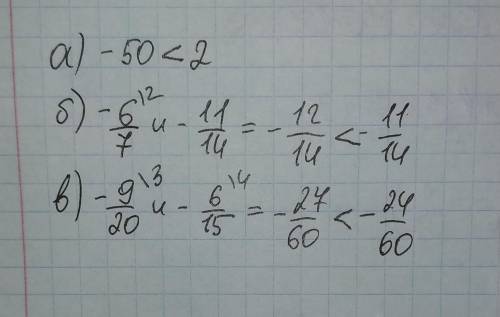 а) -50 < 2
б) -6/7 \2 и - 11/14 = - 12/14 < - 11/14
в) -9/20 \3 и - 6/15 \4 = - 27/60 < - 24/60